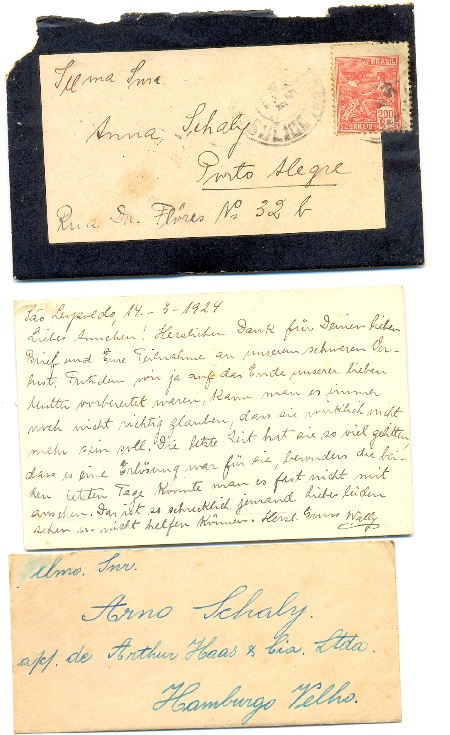 Illma Snra.
Anna Schaly
Porto Alegre
Rua Dr. Flôres Nº 32 b
BRASIL
200
CORREIO
São Leopoldo, 14. - 3 - 1924
Liebes Annchen! Herzlichen Dank für Deinen lieben
Brief und Eure Teilnahme an unserem schweren Ver-
lust. Trotzdem wir ja auf das Ende unserer lieben
Mutter vorbereitet waren, kann man es immer
noch nicht richtig glauben, dass sie wirklich nicht
mehr sein soll. Die letzte Zeit hat sie so viel gelitten,
dass es eine Erlösung war für sie, besonders die bei-
den letzten Tage konnte man es fast nicht mit
ansehen. Das ist so schrecklich jemand liebes leiden
sehen u. nicht helfen können. Herzl. Gruss Willy
Illmo. Snr.
Arno Schaly.
a/c. de Arthur Haas & Cia. Ltda.
Hamburgo Velho.